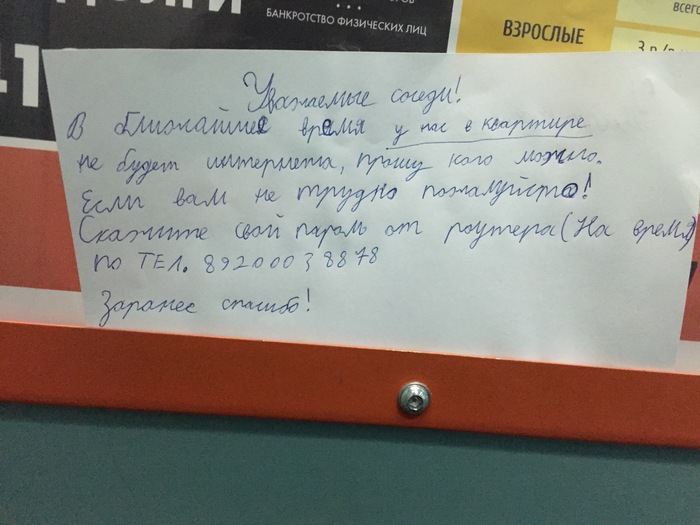 БАНКРОТСТВО ФИЗИЧЕСКИХ ЛИЦ
ВЗРОСЛЫЕ
всего
Уважаемые соседи!
В ближайшее время у нас в квартире
не будет интернета, прошу кого можно.
Если вам не трудно пожалуйсто!
Скажите свой пароль от роутера (На время)
по ТЕЛ. 89200038878
Заранее спасибо!